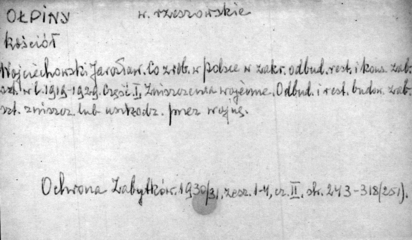 OŁPINY w. rzeszowskie
Kościół
Wojciechowski Jarosław. Co zrob. w Polsce w zakr. odbud. rest. i kons. zab.
szt. w l. 1919-1929. Część I. Zniszczenia wojenne. Odbud. i rest. budow. zab.
szt. zniszcz. lub uszkodz. przez wojnę.
Ochrona Zabytków. 1930/31, zesz. 1-4, cz. II, str. 243-318 (251).